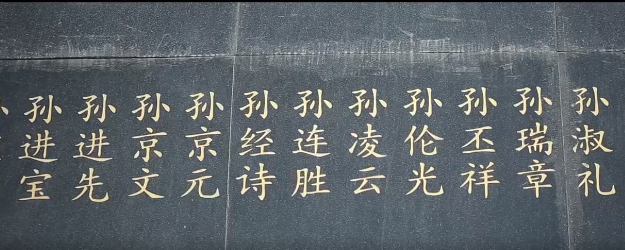 孙进宝
孙进先
孙京文
孙京元
孙经诗
孙连胜
孙凌云
孙伦光
孙丕祥
孙瑞章
孙淑礼